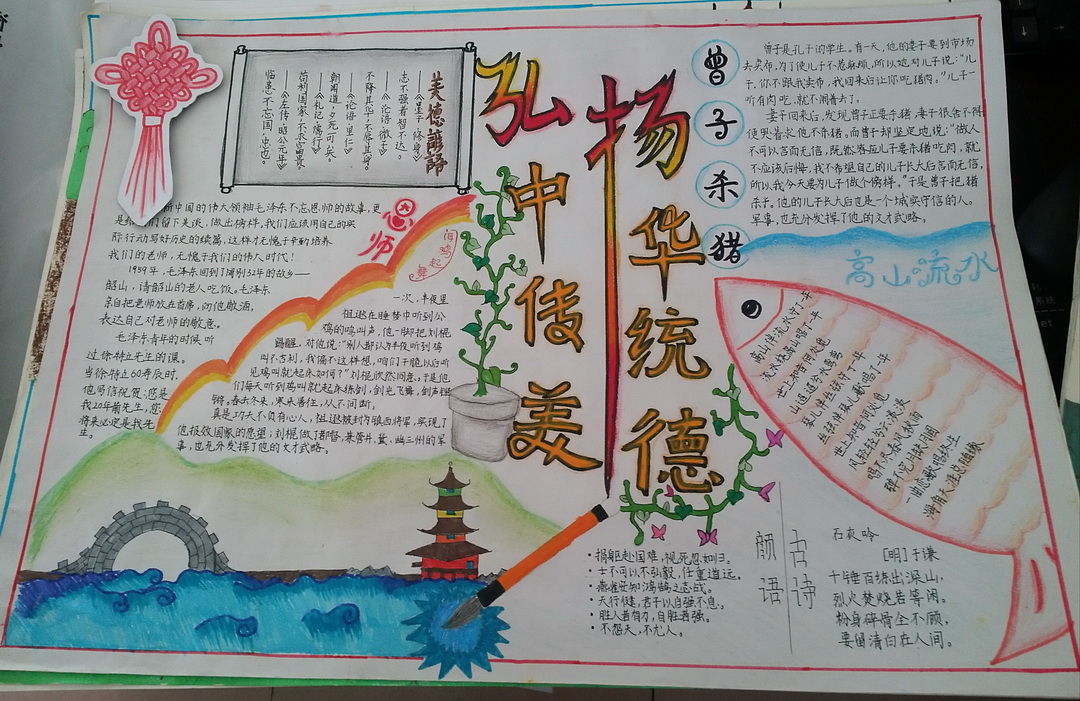 弘扬
中华
传统
美德
美德谚语
——《墨子·修身》
志不强者智不达。
——《论语·微子》
不降其志，不辱其身。
——《论语·里仁》
朝闻道，夕死可矣。
——《礼记·儒行》
苟利国家，不求富贵。
——《左传·昭公元年》
临患不忘国，忠也。
恩师
中国的伟大领袖毛泽东不忘恩师的故事，更
是给我们留下美谈，做出榜样。我们应该用自己的实
际行动写好历史的续篇，这样才无愧于辛勤培养
我们的老师，无愧于我们的伟大时代！
1959年，毛泽东回到了阔别32年的故乡——
韶山，请韶山的老人吃饭。毛泽东
亲自把老师放在首席，向他敬酒，
表达自己对老师的敬意。
毛泽东青年的时候听
过徐特立先生的课。
当徐特立60寿辰时，
他写信祝贺：您是
我20年前先生，您
将来必定是我先
生。
闻鸡起舞
一次，半夜里
祖逖在睡梦中听到公
鸡的鸣叫声，他一脚把刘琨
踢醒，对他说：“别人都认为半夜听到鸡
叫不吉利，我偏不这样想，咱们干脆以后听
见鸡叫就起床如何？”刘琨欣然同意，于是他
们每天听到鸡叫就起床练剑，剑光飞舞，剑声铿
锵。春去冬来，寒来暑往，从不间断。
真是功夫不负有心人，祖逖被封为镇西将军，实现了
他报效国家的愿望；刘琨做了都督，兼管并、冀、幽三州的军
事，也充分发挥了他的文才武略。
曾子杀猪
曾子是孔子的学生。有一天，他的妻子要到市场
去卖布，为了使儿子不惹麻烦，所以她对儿子说：“儿
子，你不跟我卖布，我回来后让你吃猪肉。”儿子一
听有肉吃，就不闹着去了。
妻子回来后，发现曾子正要杀猪，妻子很舍不得
便哭着求他不杀猪，而曾子却坚定地说：“做人
不可以言而无信，既然答应儿子要杀猪吃肉，就
不应该后悔，我不希望自己的儿子长大后言而无信，
所以我今天要为儿子做个榜样。”于是曾子把猪
杀了。他的儿子长大后也是一个城实守信的人。
军事，也充分发挥了他的文才武略。
高山流水
高山伴流水守了一年
流水绕高山唱了一年
世上知音何处觅
琴儿伴
世上知音何处
风轻轻
唱不尽春风秋雨
弹不完
一曲恋歌唱终生
海角天涯总相缘
颜语
• 捐躯赴国难，视死忽如归。
• 士不可以不弘毅，任重道远。
• 燕雀安知鸿鹄之志哉。
• 天行健，君子以自强不息。
• 胜人者有力，自胜者强。
• 不怨天，不尤人。
古诗
石灰吟
[明]于谦
千锤百练出深山，
烈火焚烧若等闲。
粉身碎骨全不顾，
要留清白在人间。